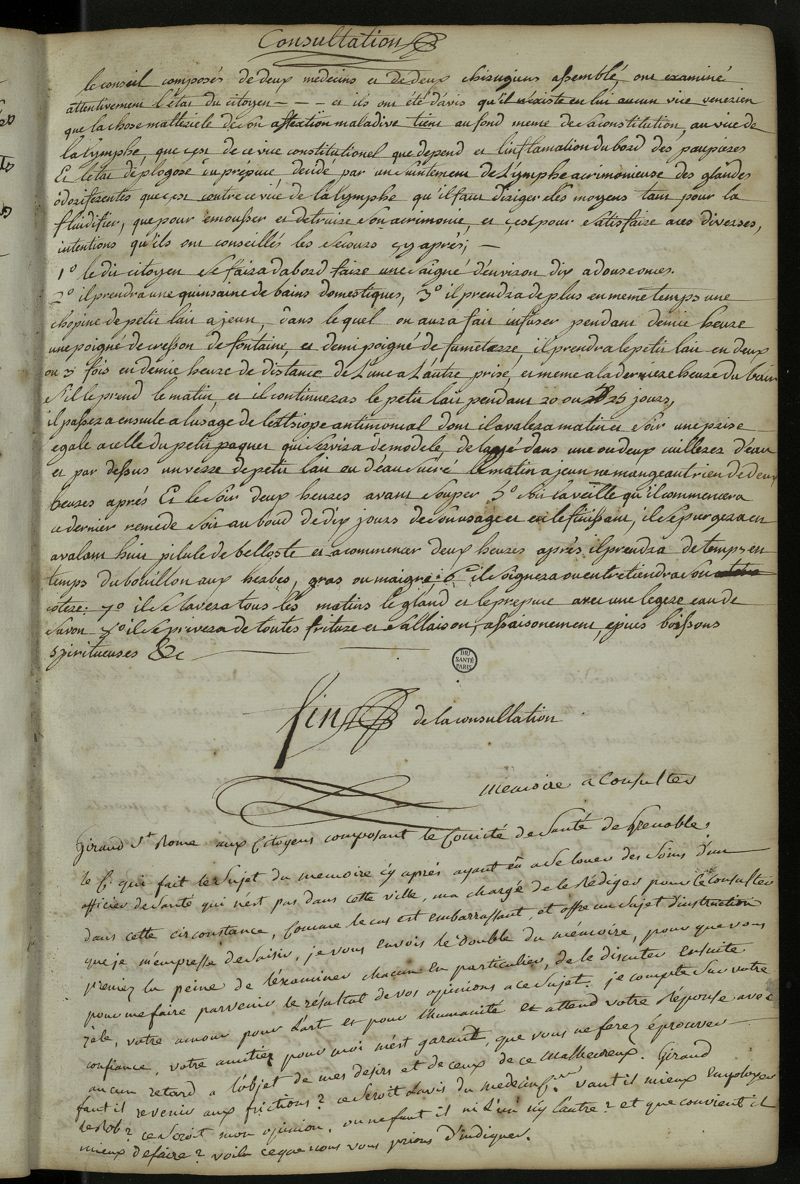 Consultation
le conseil composés de deux médecins et de deux chirurgiens assemblé, ont examiné
attentivement l'état du citoyen - - - et ils ont été d'avis qu'il n'existe en lui aucun vice venerien
que la chose materiele de son affection maladive tient au fond meme de sa constitution, au vice de
la lymphe, que c'est de ce vice constitutionel que depend et l'inflamation du bord des paupieres
Et l'etat de plogose du prépuce décidé par un suintement de Lymphe acrimonieuse des glandes
odoriferentes que c'est contre ce vice de la lymphe qu'il faut diriger les moyens tant pour la
fluidifier, que pour emousser et detruire son acrimonie, et c'est pour satisfaire a ces diverses,
intentions qu'ils ont conseillés les secours cy après; —
1° le dit citoyen se faira d'abord faire une saigné d'environ dix a douse onces.
2° il prendra une quinsaine de bains domestiques, 3° il prendra de plus en meme temps une
chopine de petit lait a jeun, dans le quel on aura fait infuser pendant demie heure
une poigné de cresson de fontaine, et demi poigné de fumeterre il prendra le petit lait en deux
ou 3 fois en demie heure de distance de L'une a L'autre prise, et meme a la derniere heure du bain
s'il le prend le matin, et il continuera le petit lait pendant 20 ou 25 jours,
il passera ensuite a l'usage de l'ethiope antimonial dont il avalera matin et soir une prise
egale a celle du petit paquet qui servira de modele, delayé dans une ou deux cuillerés d'eau
et par dessus un verre de petit lait ou d'eau sucré le matin a jeun ne mangeant rien de deux
heures après Et le soir deux heures avant souper 5° soit la veille qu'il commencera
ce dernier remede soit au bout de dix jours de son usage et en le finissant, il se purgera en
avalant huit pilule de belloste et a commencer deux heures après il prendra de temps en
temps du bouillon aux herbes, gras ou maigre; 6° il signera ou entretiendra son
cotere: 7° il se lavera tous les matins le gland et le prepuce avec une legere eau de
savon 8° il se privera de toutes friture et salaison, assaisonement, epices boissons
spiritueuses &c
BIU SANTÉ PARIS
fin de la consultation
memoire a Consulter
Giraud St Rome aux Citoyens composant le Comité de Santé de Grenoble,
le C. qui fait le sujet du memoire cy après ayant eu a se louer des soins d'un
officier de santé qui n'est pas dans cette ville, m'a chargé de le rédiger pour le consulter
dans cette circonstance, Comme le cas est embarrassant, et offre un sujet d'instruction
que je m'empresse de saisir, je vous envois le double du memoire, pour que vous
preniez la peine de l'éxaminer chacun en particulier, de le discuter ensuite
pour me faire parvenir le résultat de vos opinions a ce sujet. je compte sur votre
zèle, votre amour pour l'art et pour l'humanité et attend votre réponse avec
confiance, votre amitiez pour moi m'est garant, que vous ne ferez éprouver
aucun retard a l'objet de mes desirs et de ceux de ce malheureux. Giraud
faut il revenir aux frictions? ce seroit l'avis du medecin vaut il mieux Employer
le rob? ce seroit mon opinion, ou ne faut il ni l'un n'y l'autre? et que convient il
mieux de faire? voila ce que nous vous prions d'indiquer.